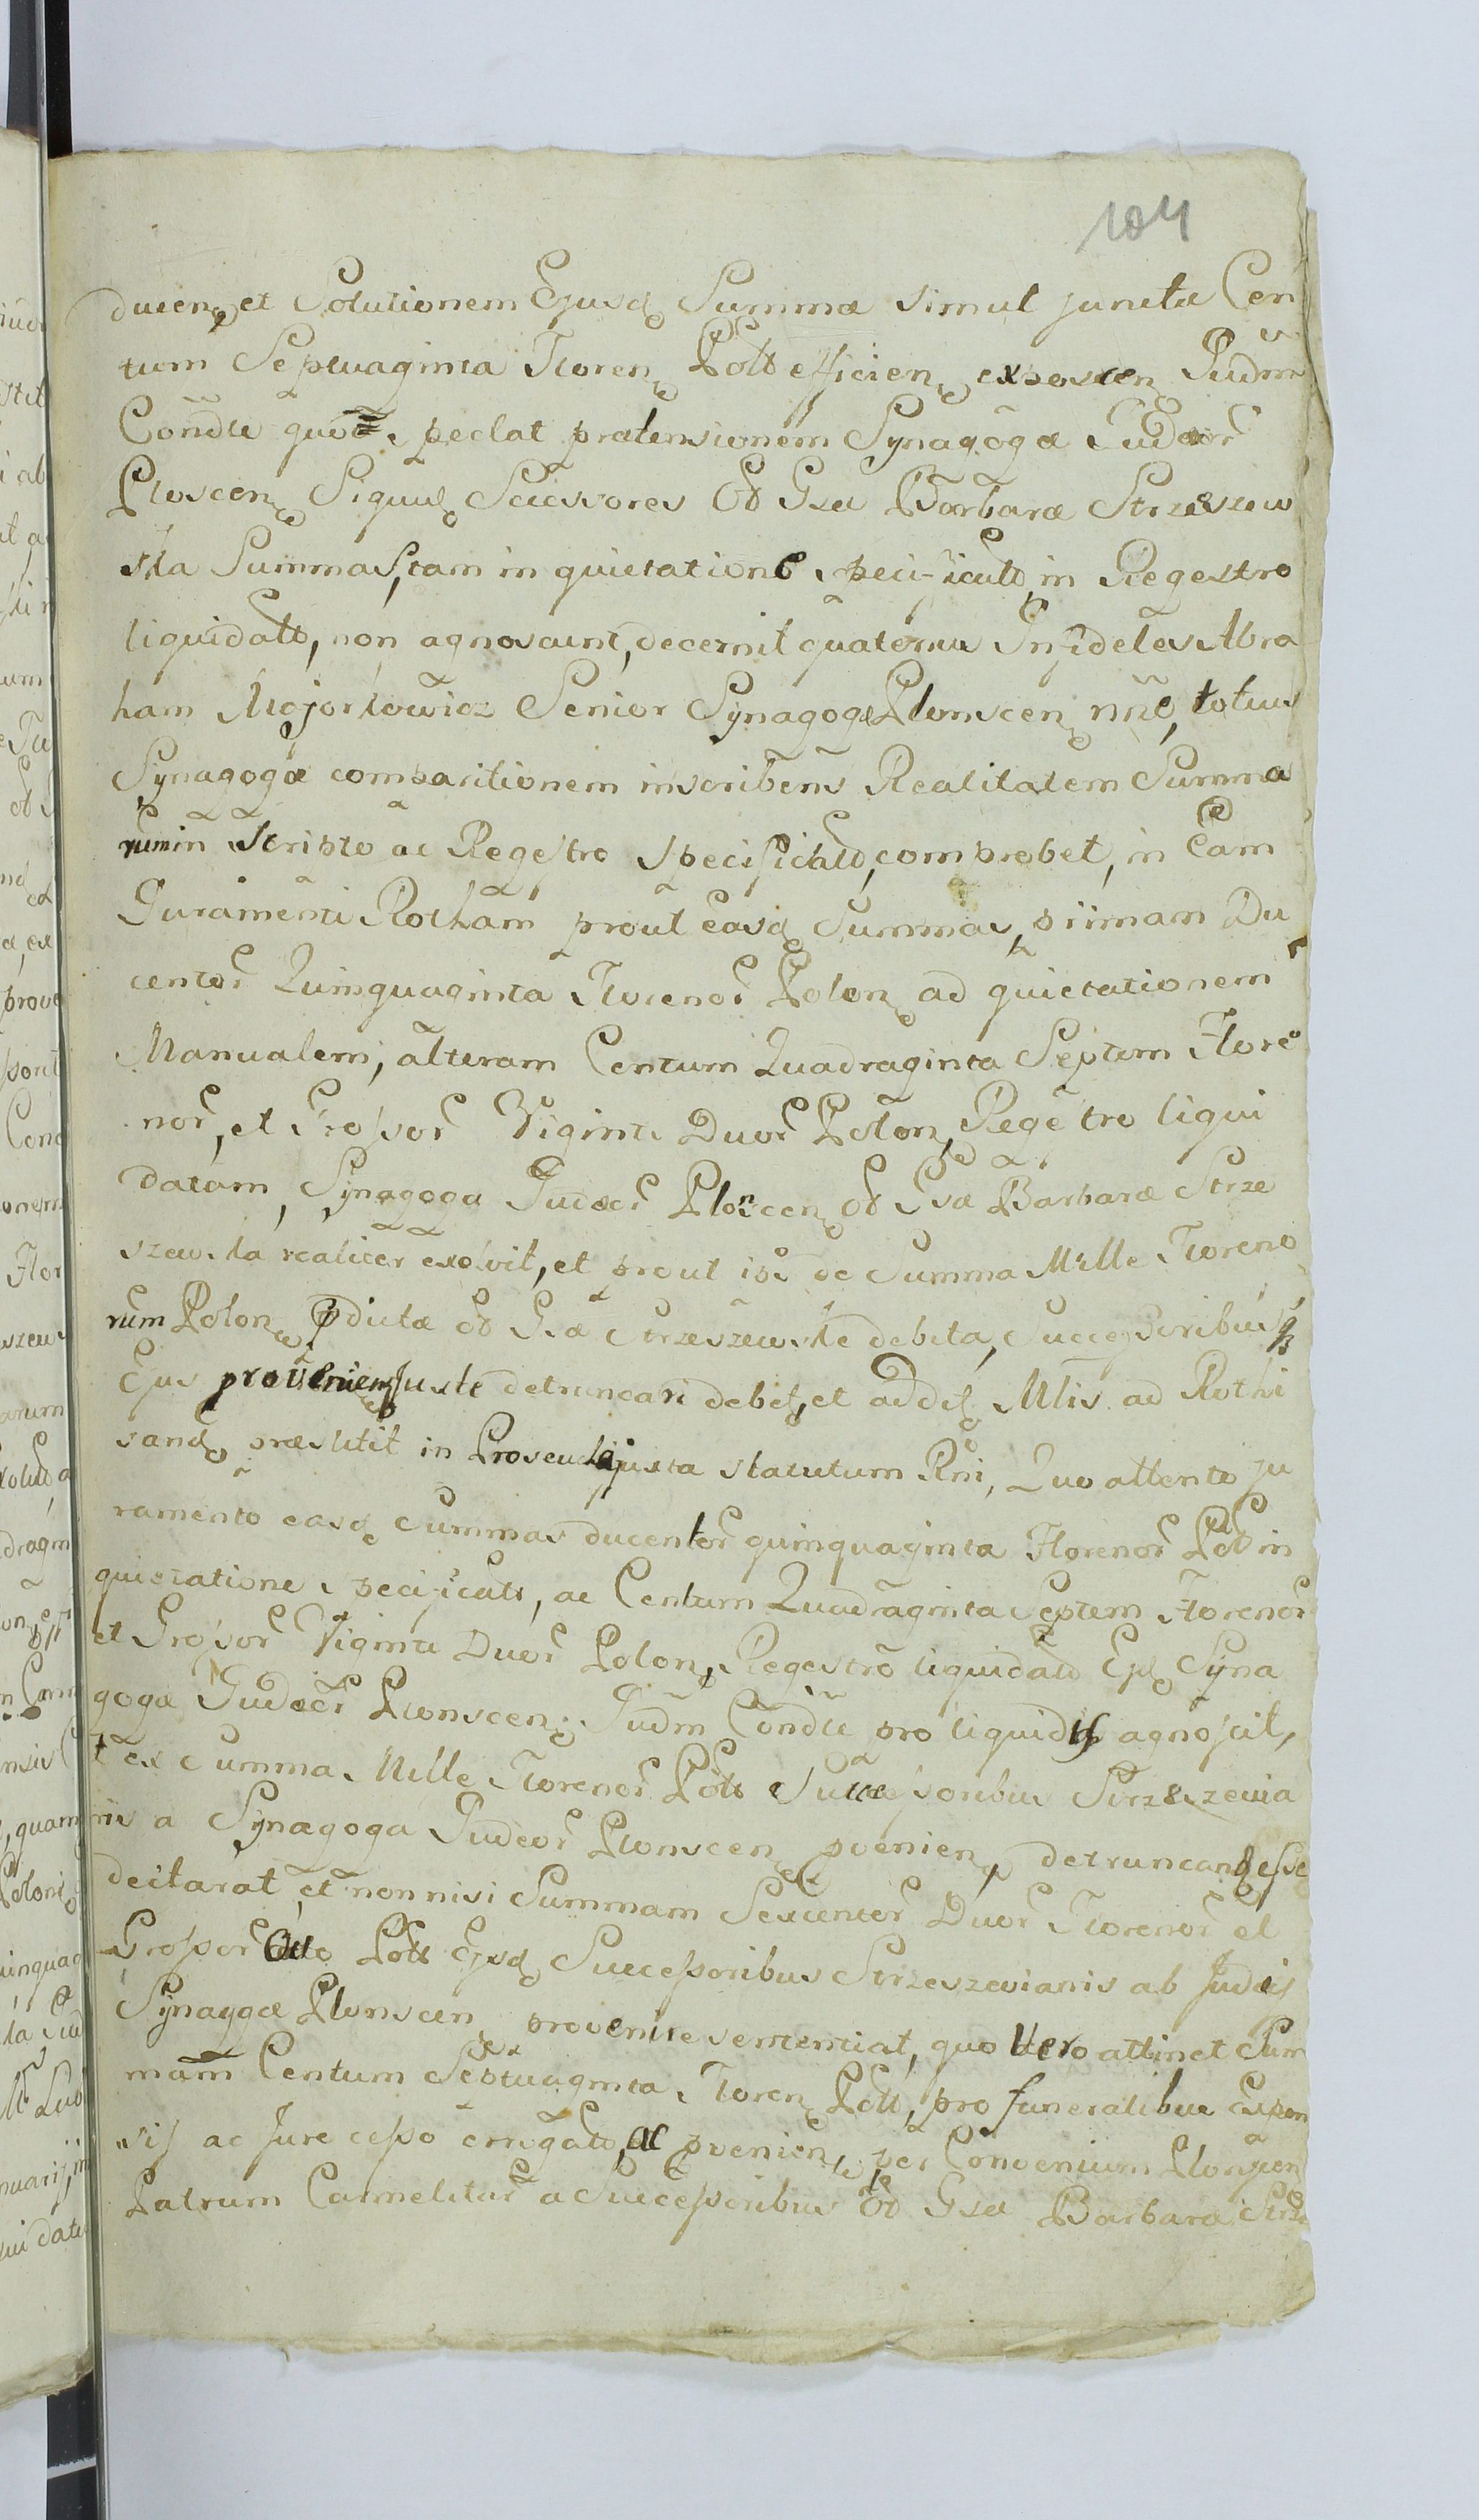 104
ducen, et Solutionem Ejusd Summæ simul juncta Cen
tum Septuaginta Floren Poll efficien exposcen Judm
Condtu quo spectat prætensionem Synagogæ Judæor
Ploscen Siquid Sucessores Od Gsæ Barbaræ Strzeszew
ska Summas, tam in quietatione specificats, in Regestro
liquidats, non agnoscunt, decernit quatenus Infideles Abra
ham Mojorkowicz Senior Synagogæ Plonscen nne, totius
Synagogæ comparitionem inscribens Realitatem Summa
rum in Scripto ac Regestro specificats, comprobet, in Eam
Juramenti Rotham prout easd Summas, primam Du
centor Quinquaginta Florenor Polon ad quietationem
Manualem, alteram Centum Quadraginta Septem Flore
nor, et Grossor Viginti Duor Polon Regestro liqui
datam, Synagoga Judæor Plonscen Od Gsæ Barbaræ Strze
szewska realiter exolvit, et prout ise de Summa Mille Floreno
rum Polon pdictæ Od Gsæ Strzeszewske debita, Successoribusq
Ejus provenien juste detruncari debet, et ad det Mlis ad Rothi
sand præstitit in Proseucha juxta statutum Rni, Quo attento ju
ramento easd Summas ducentor quinquaginta Florenor Poll in
quietatione specificats, ac Centum Quadraginta Septem Florenor
et Grossor Viginti Duor Polon, Regestro liquidats Ejd Syna
gogæ Judæor Plonscen Judm Condtu pro liquidis agnoscit,
et ex Summa Mille Florenor Poll Successoribus Strzeszewia
nis a Synagoga Judeor Plonscen pvenien, detruncand esse
declarat, et non nisi Summam Sexcentor Duor Florenor et
Grossor Octo Poll Ejsd Successoribus Strzeszewianis ab Judæis
Synagogæ Plonscen provenire sententiat, quo Vero attinet Sum
mam Centum Septuaginta Floren Poll, pro funeralibus Expen
sis ac Jure cesso errogats, ac pvenien, per Conventum Plonscen
Patrum Carmelitar a Successoribus Od Gsæ Barbaræ Strze